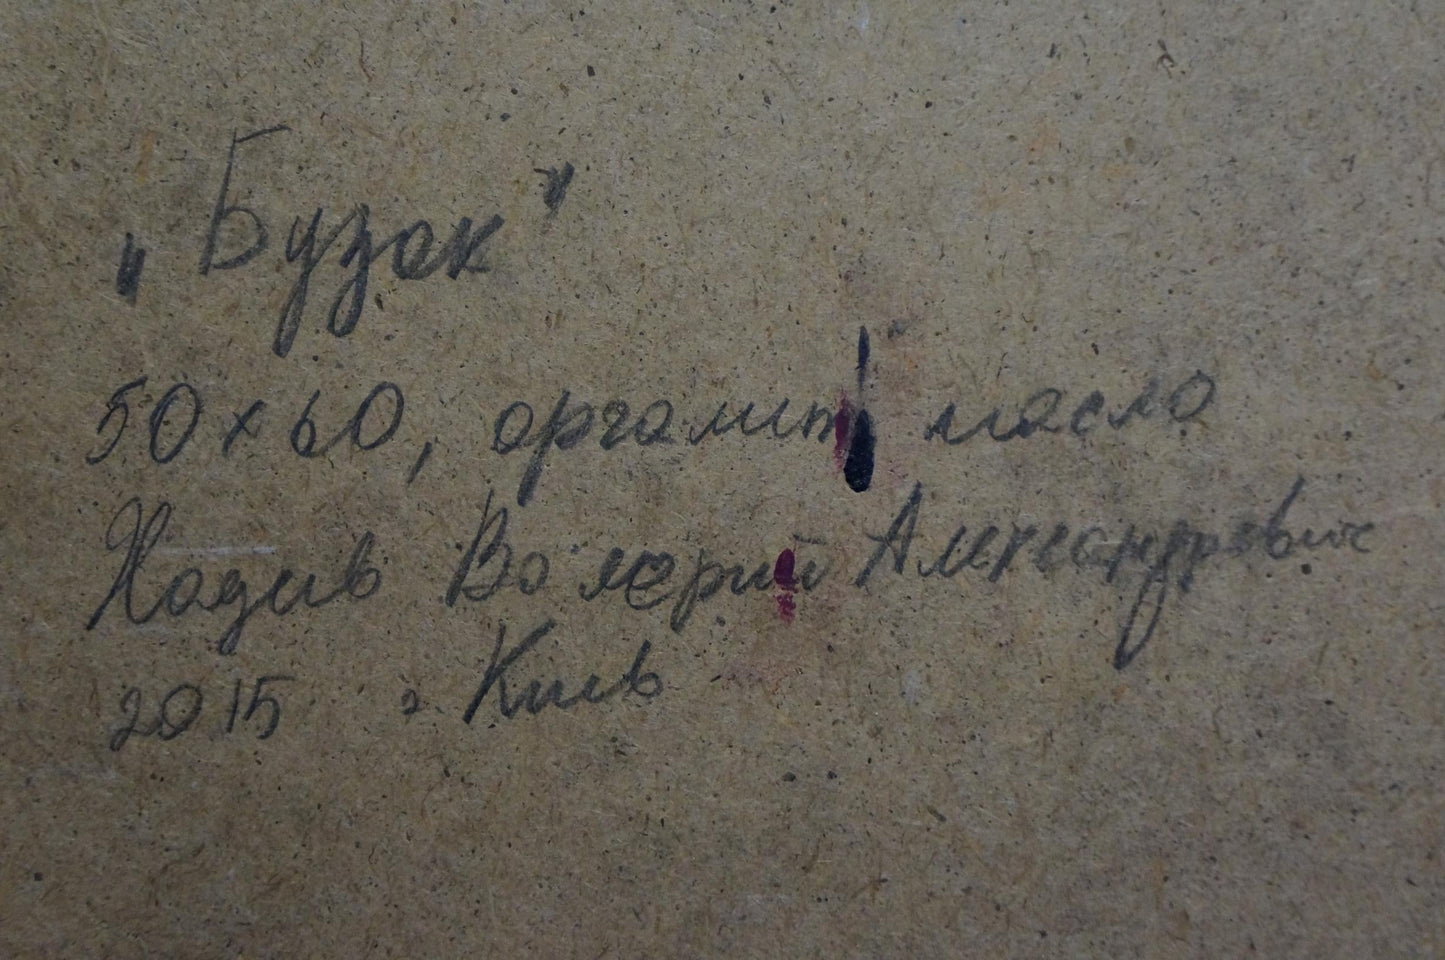 „Бузок"
50х60, оргаліт масло
Валерий Александрович
2015 г. Киев